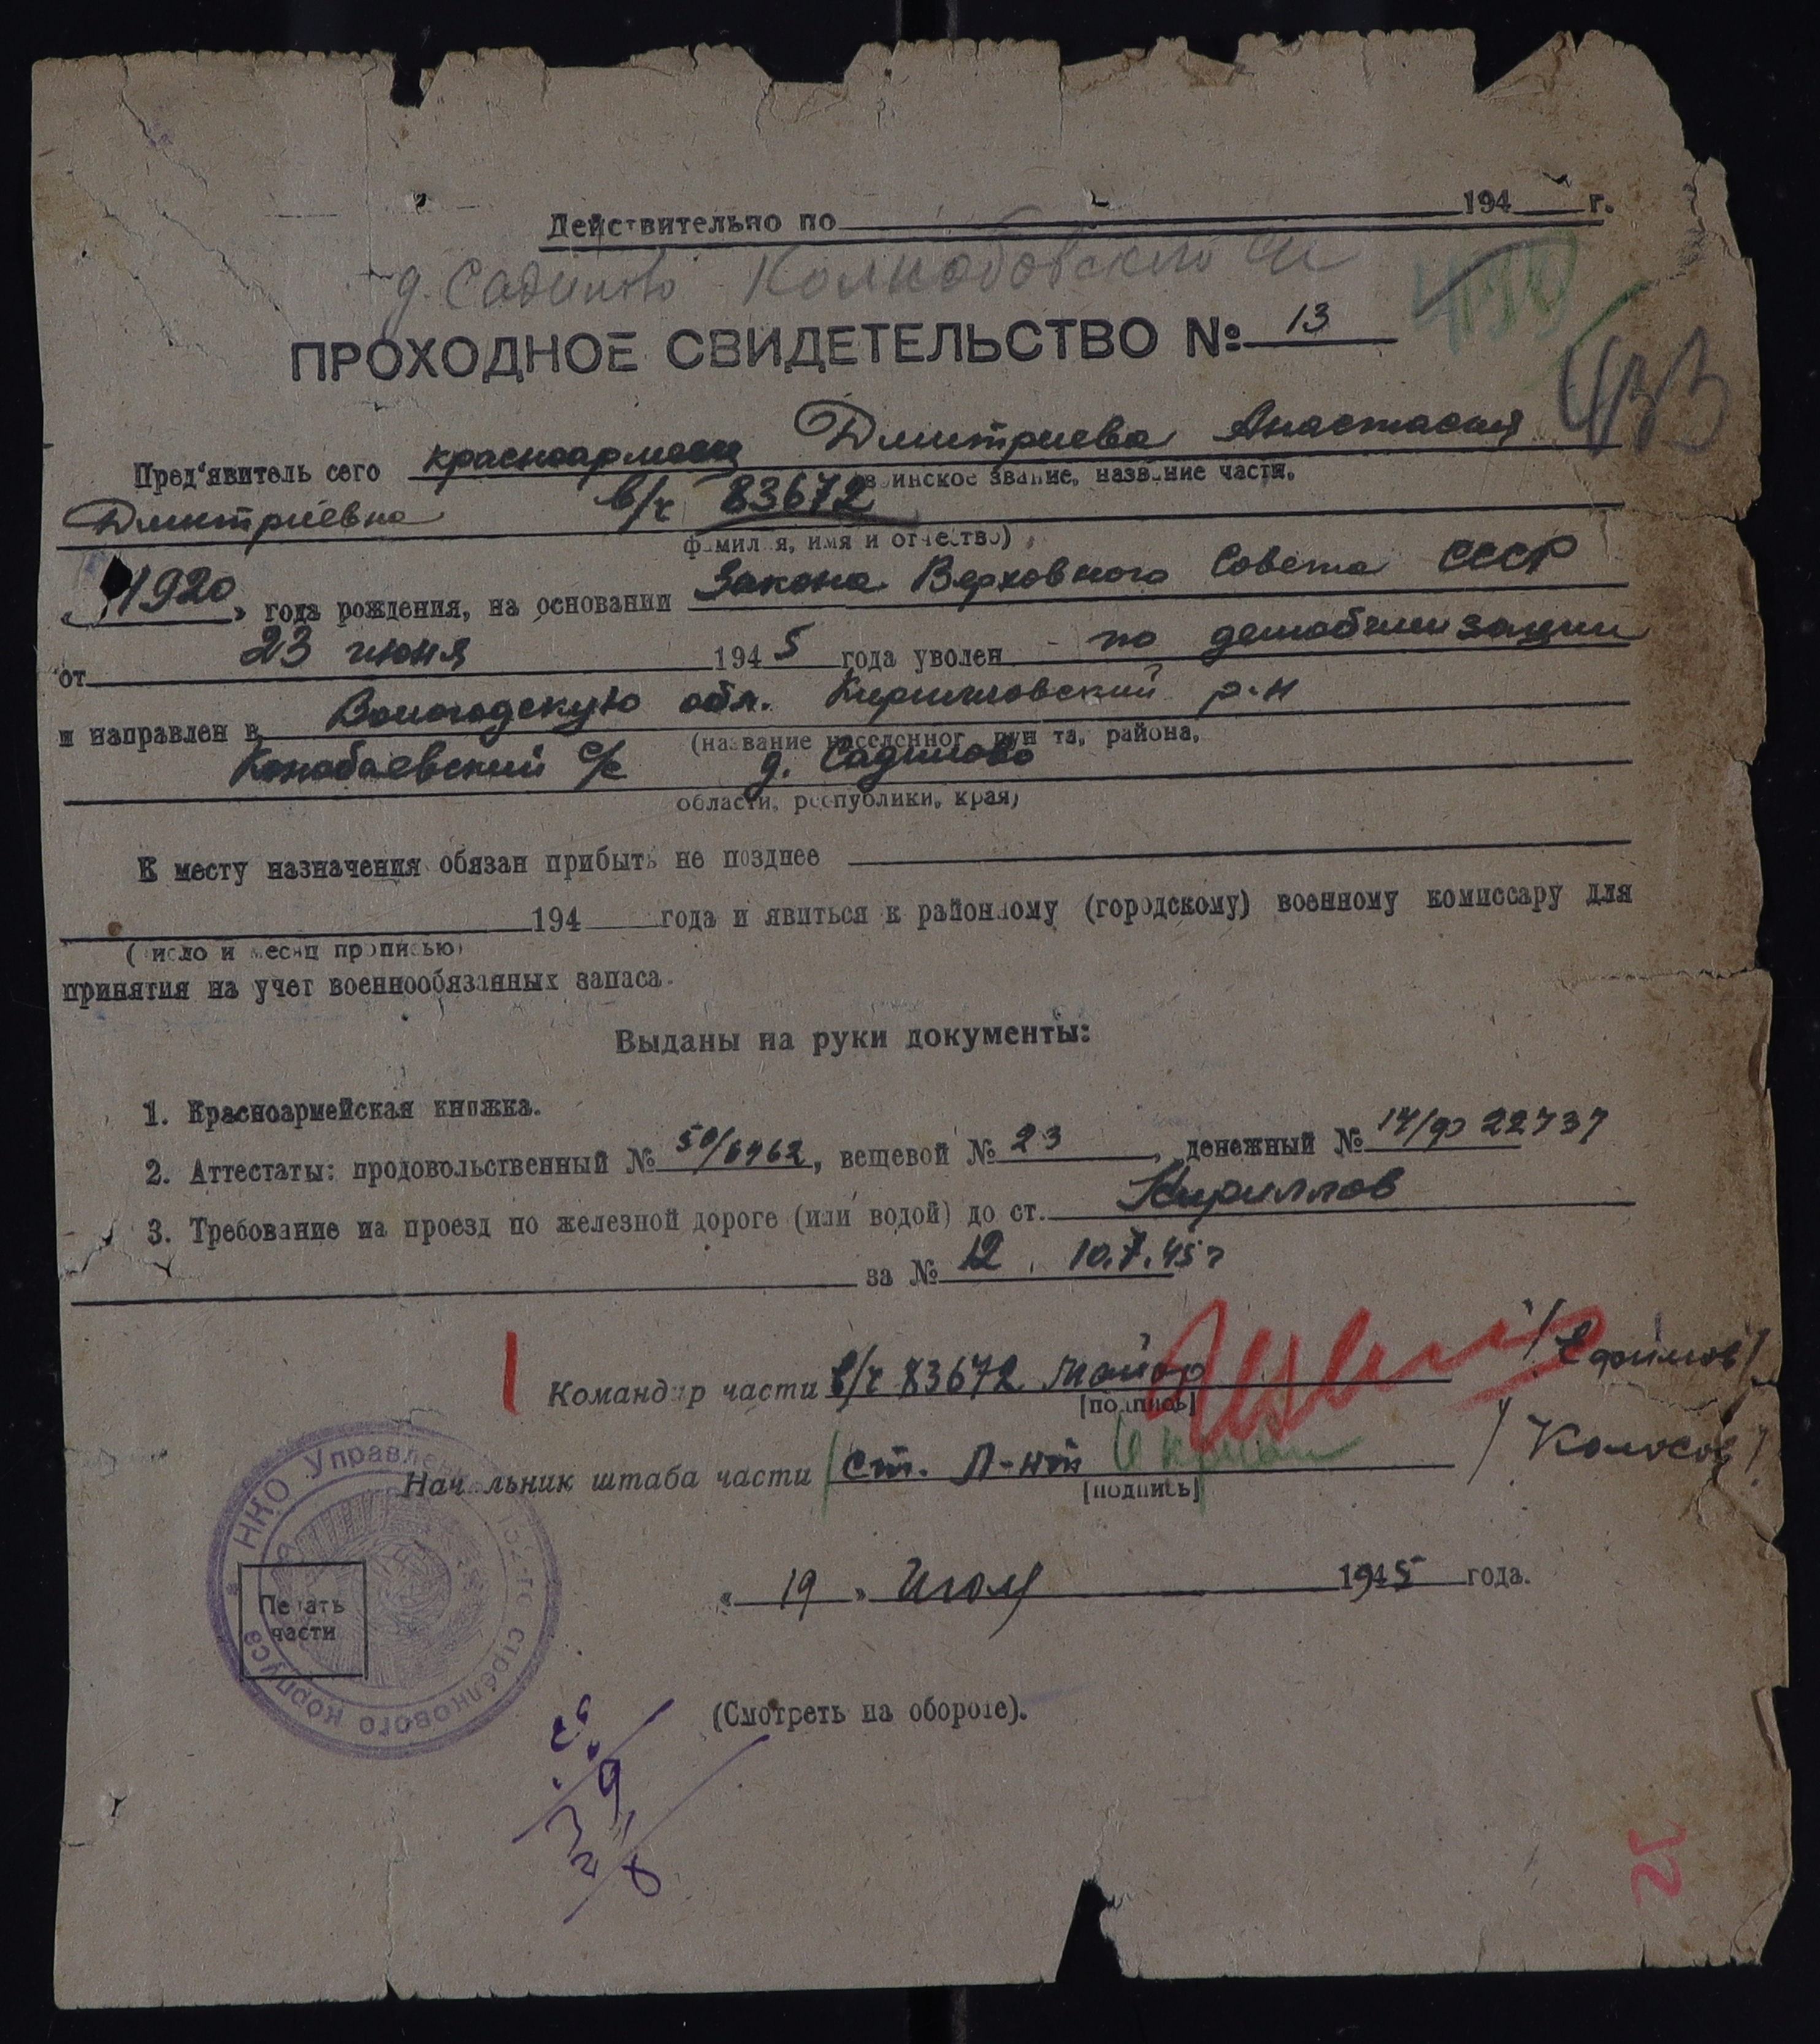 Действительно по 194 г.
д. Садилово
ПРОХОДНОЕ СВИДЕТЕЛЬСТВО № 13
433
Пред'явитель сего красноармеец Дмитриева Анастасия
воинское звание, название части,
Дмитриевна в/ч 83672
фамилия, имя и отчество)
„1920„ года рождения, на основании Закона Верховного Совета СССР
от 23 июня 1945 года уволен по демобилизации
и направлен в Вологодскую обл. Кирилловский р-н
(название населенного пункта, района,
Конобаевский с/с д. Садилово
области, республики, края)
К месту назначения обязан прибыть не позднее
194 года и явиться к районному (городскому) военному комиссару для
(число и месяц прописью)
принятия на учет военнообязанных запаса.
Выданы на руки документы:
1. Красноармейская книжка.
2. Аттестаты: продовольственный № 50/6962, вещевой № 23, денежный № 14/ 22737
3. Требование на проезд по железной дороге (или водой) до ст. Кириллов
за № 12. 10.7.45 г
Командир части в/ч 83672 майор /Ефимов/
[подпись]
Начальник штаба части ст. л-нт /Колосов/
[подпись]
ННО Управление 132-го стрелкового корпуса
Печать
части
„ 19 „ июля 1945 года.
(Смотреть на обороте).